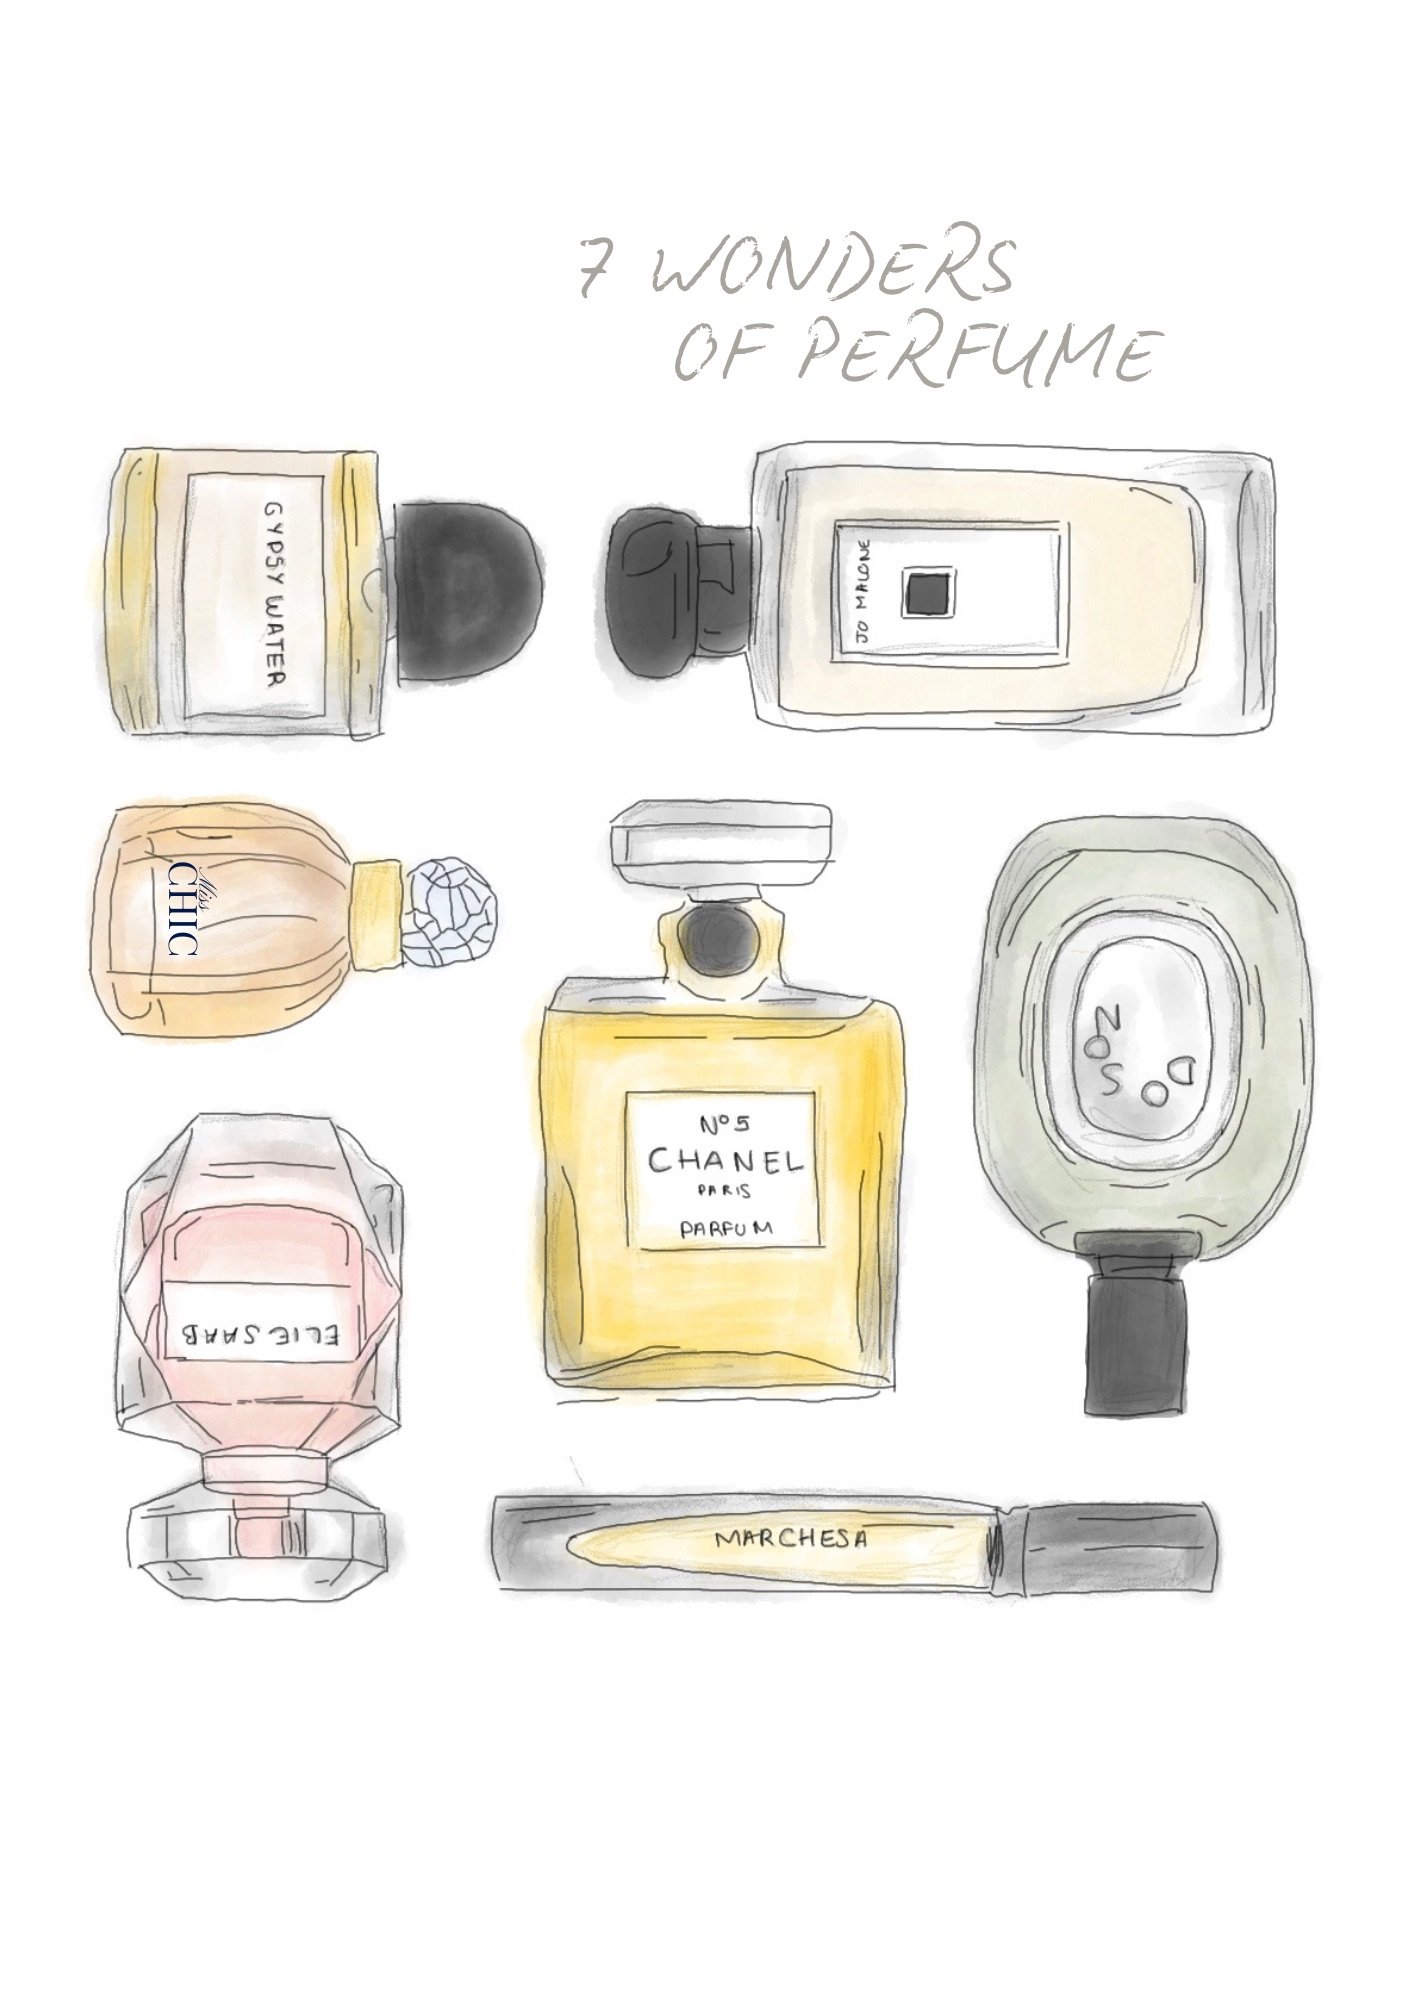 7 WONDERS
OF PERFUME
GYPSY WATER
JO MALONE
Miss
CHIC
Nº5
CHANEL
PARIS
PARFUM
DO
SON
ELIE SAAB
MARCHESA